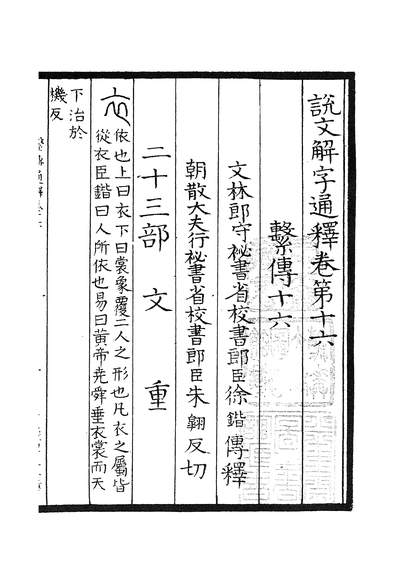 說文解字通釋卷第十六
繫傳十六
文林郎守祕書省校書郎臣徐鍇傳釋
朝散大夫行祕書省校書郎臣朱翶反切
二十三部 文 重
衣
依也上曰衣下曰裳象覆二人之形也凡衣之屬皆
從衣臣鍇曰人所依也易曰黃帝堯舜垂衣裳而天
下治於
機反